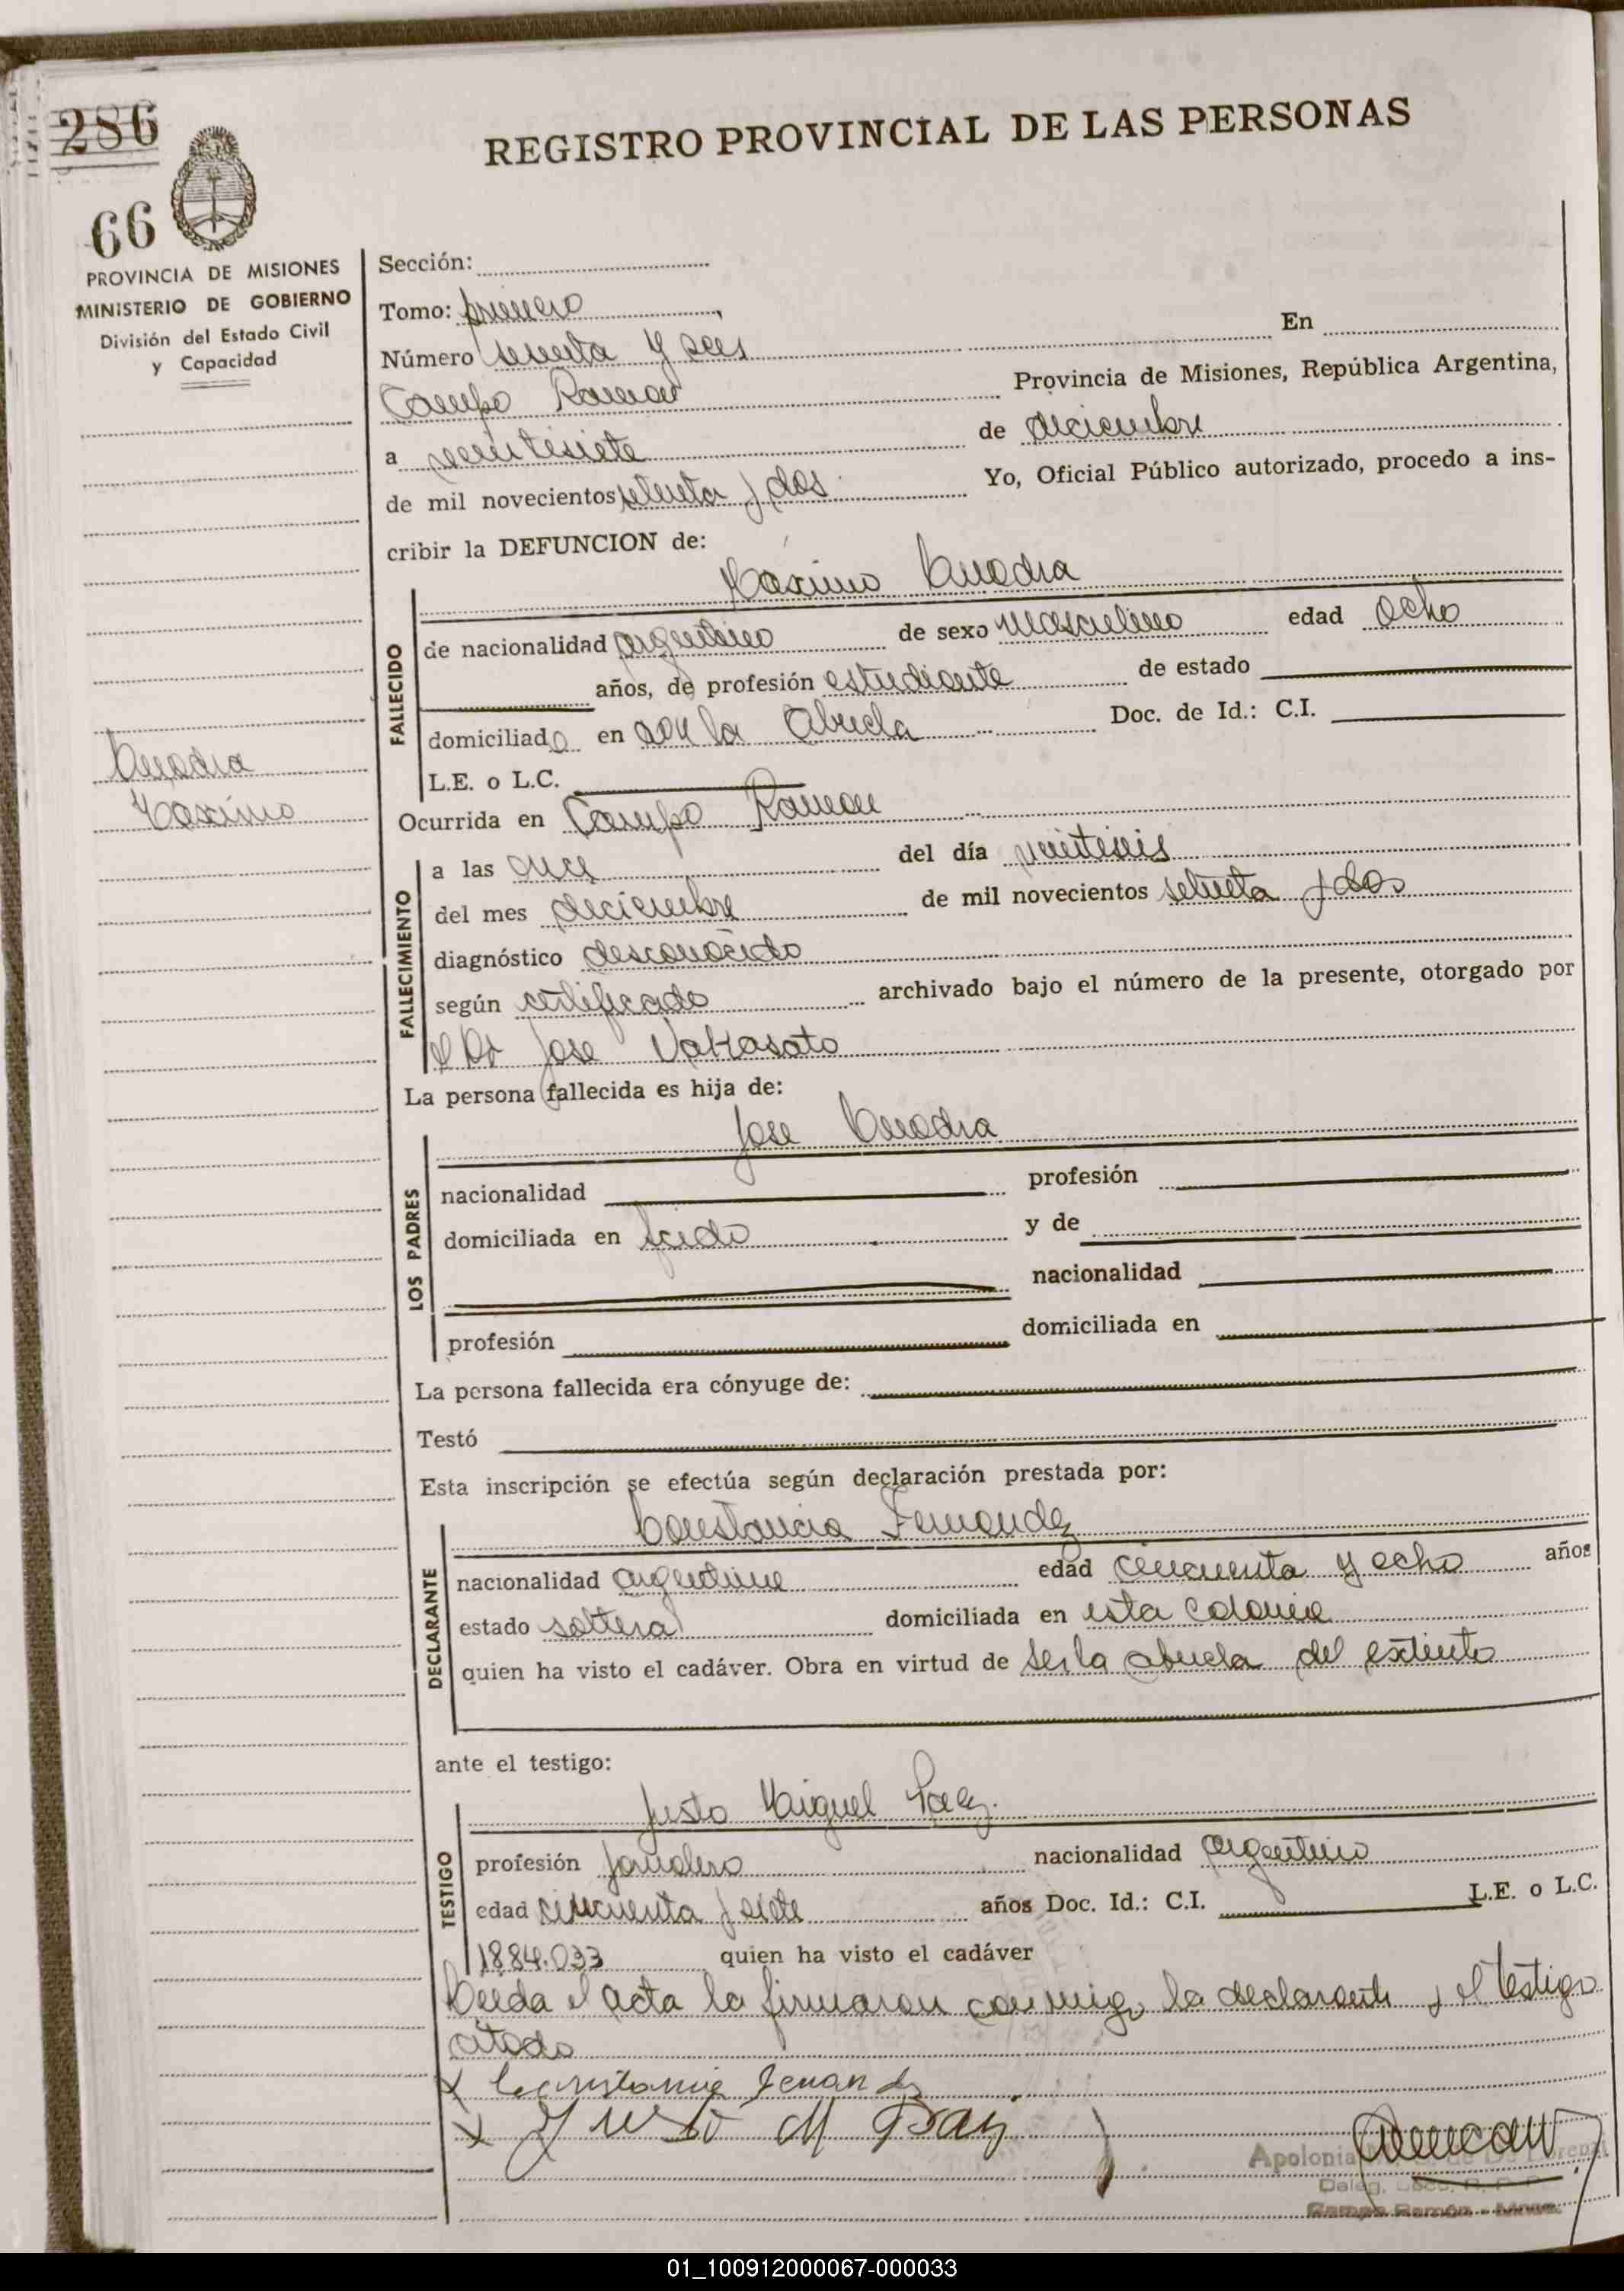 286
66
REGISTRO PROVINCIAL DE LAS PERSONAS
PROVINCIA DE MISIONES
MINISTERIO DE GOBIERNO
División del Estado Civil
y Capacidad
Sección:
Tomo: primero
Número sesenta y seis En
Campo Ramon Provincia de Misiones, República Argentina,
a veintisiete de diciembre
de mil novecientos setenta y dos Yo, Oficial Público autorizado, procedo a ins-
cribir la DEFUNCION de:
Maximo
FALLECIDO
de nacionalidad argentino de sexo masculino edad ocho
años, de profesión estudiante de estado
domiciliado en con la Abuela Doc. de Id.: C.I.
L.E. o L.C.
Maximo
Ocurrida en Campo Ramon
FALLECIMIENTO
a las once del día veintiseis
del mes diciembre de mil novecientos setenta y dos
diagnóstico desconocido
según certificado archivado bajo el número de la presente, otorgado por
el Dr Jose
La persona fallecida es hija de:
LOS PADRES
Jose
nacionalidad profesión
domiciliada en y de
nacionalidad
profesión domiciliada en
La persona fallecida era cónyuge de:
Testó
Esta inscripción se efectúa según declaración prestada por:
DECLARANTE
Constancia Fernandez
nacionalidad argentina edad cincuenta y ocho años
estado soltera domiciliada en esta colonia
quien ha visto el cadáver. Obra en virtud de ser la abuela del extinto
ante el testigo:
TESTIGO
Justo Miguel Paez.
profesión jornalero nacionalidad argentino
edad cincuenta y siete años Doc. Id.: C.I. L.E. o L.C.
1884.033 quien ha visto el cadáver
Leida el acta la firmaron conmigo la declarante y el testigo
citado
x Constancia Fernandez
x Justo M Paez
Apolonia de De
Deleg.
Campo Ramón - Mnes.
01_100912000067-000033